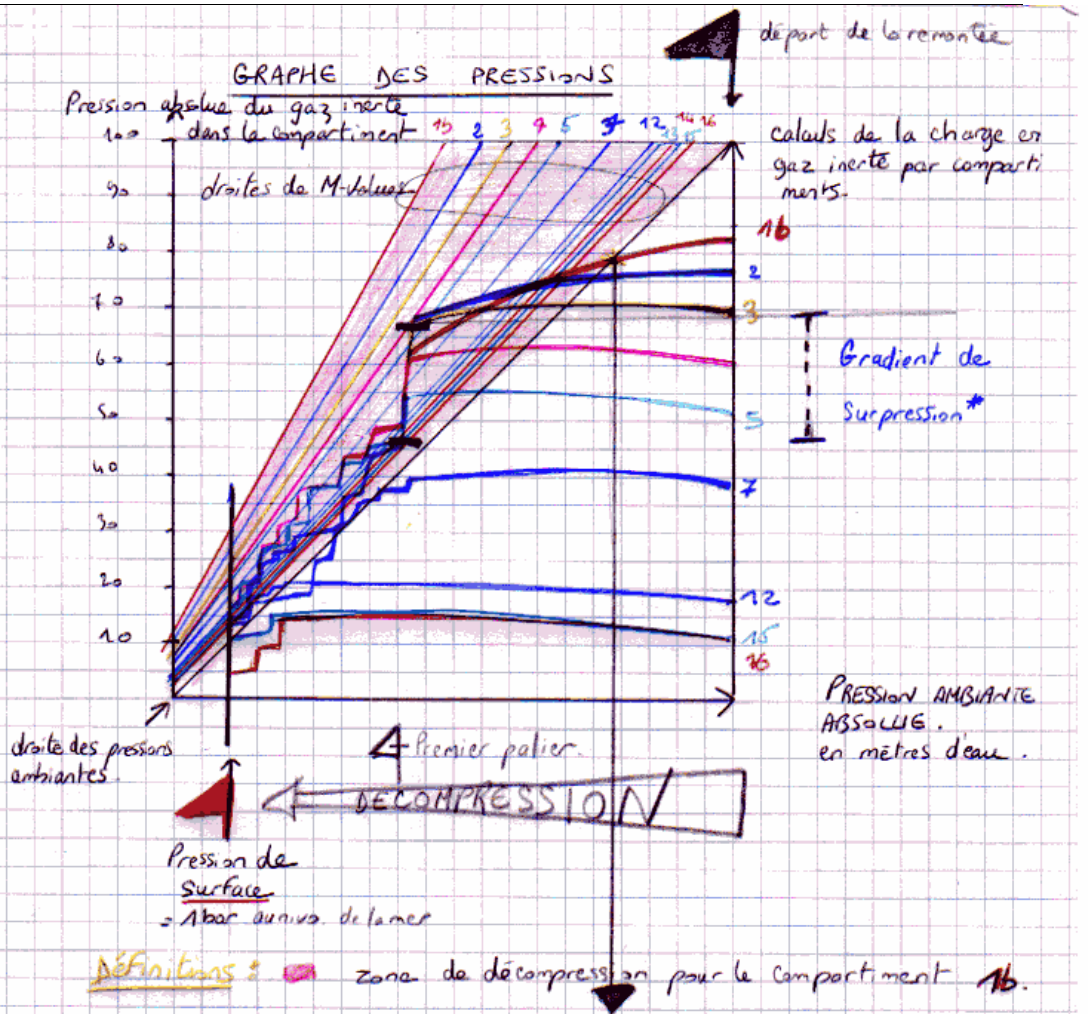 départ de la remontée
GRAPHE DES PRESSIONS
Pression absolue du gaz inerte
dans le compartiment
1b 2 3 4 5 7 12 13 14 15 16
100
90
80
70
60
50
40
30
20
10
droites de M-Values
calculs de la charge en
gaz inerte par comparti
ments.
1b
2
3
5
7
12
15
16
Gradient de
Surpression*
PRESSION AMBIANTE
ABSOLUE.
en mètres d'eau.
droite des pressions
ambiantes.
Premier palier.
DECOMPRESSION
Pression de
surface
= 1 bar au niv. de la mer
Définitions :
zone de décompression pour le compartiment 1b.